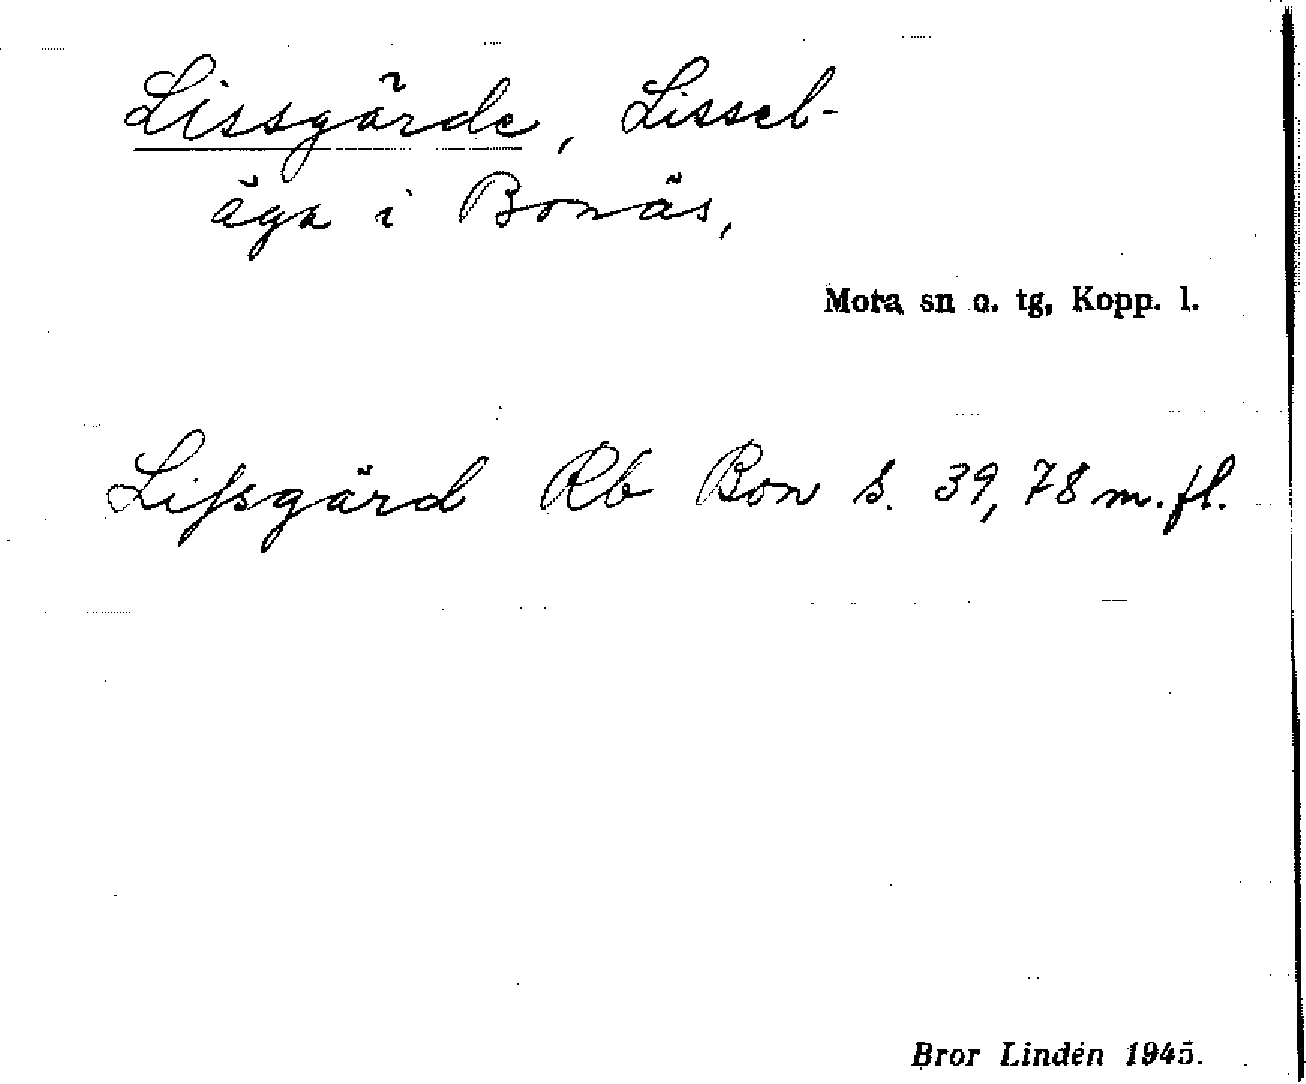 Lissgärde, Lissel-
äga i Bonäs,
Mora sn o. tg, Kopp. l.
Lissgärd Rb Bon s. 39, 78 m. fl.
Bror Lindén 1945.